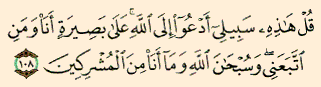 قُلْ هَٰذِهِۦ سَبِيلِىٓ أَدْعُوٓا۟ إِلَى ٱللَّهِ ۚ عَلَىٰ بَصِيرَةٍ أَنَا۠ وَمَنِ
ٱتَّبَعَنِى ۖ وَسُبْحَٰنَ ٱللَّهِ وَمَآ أَنَا۠ مِنَ ٱلْمُشْرِكِينَ ١٠٨